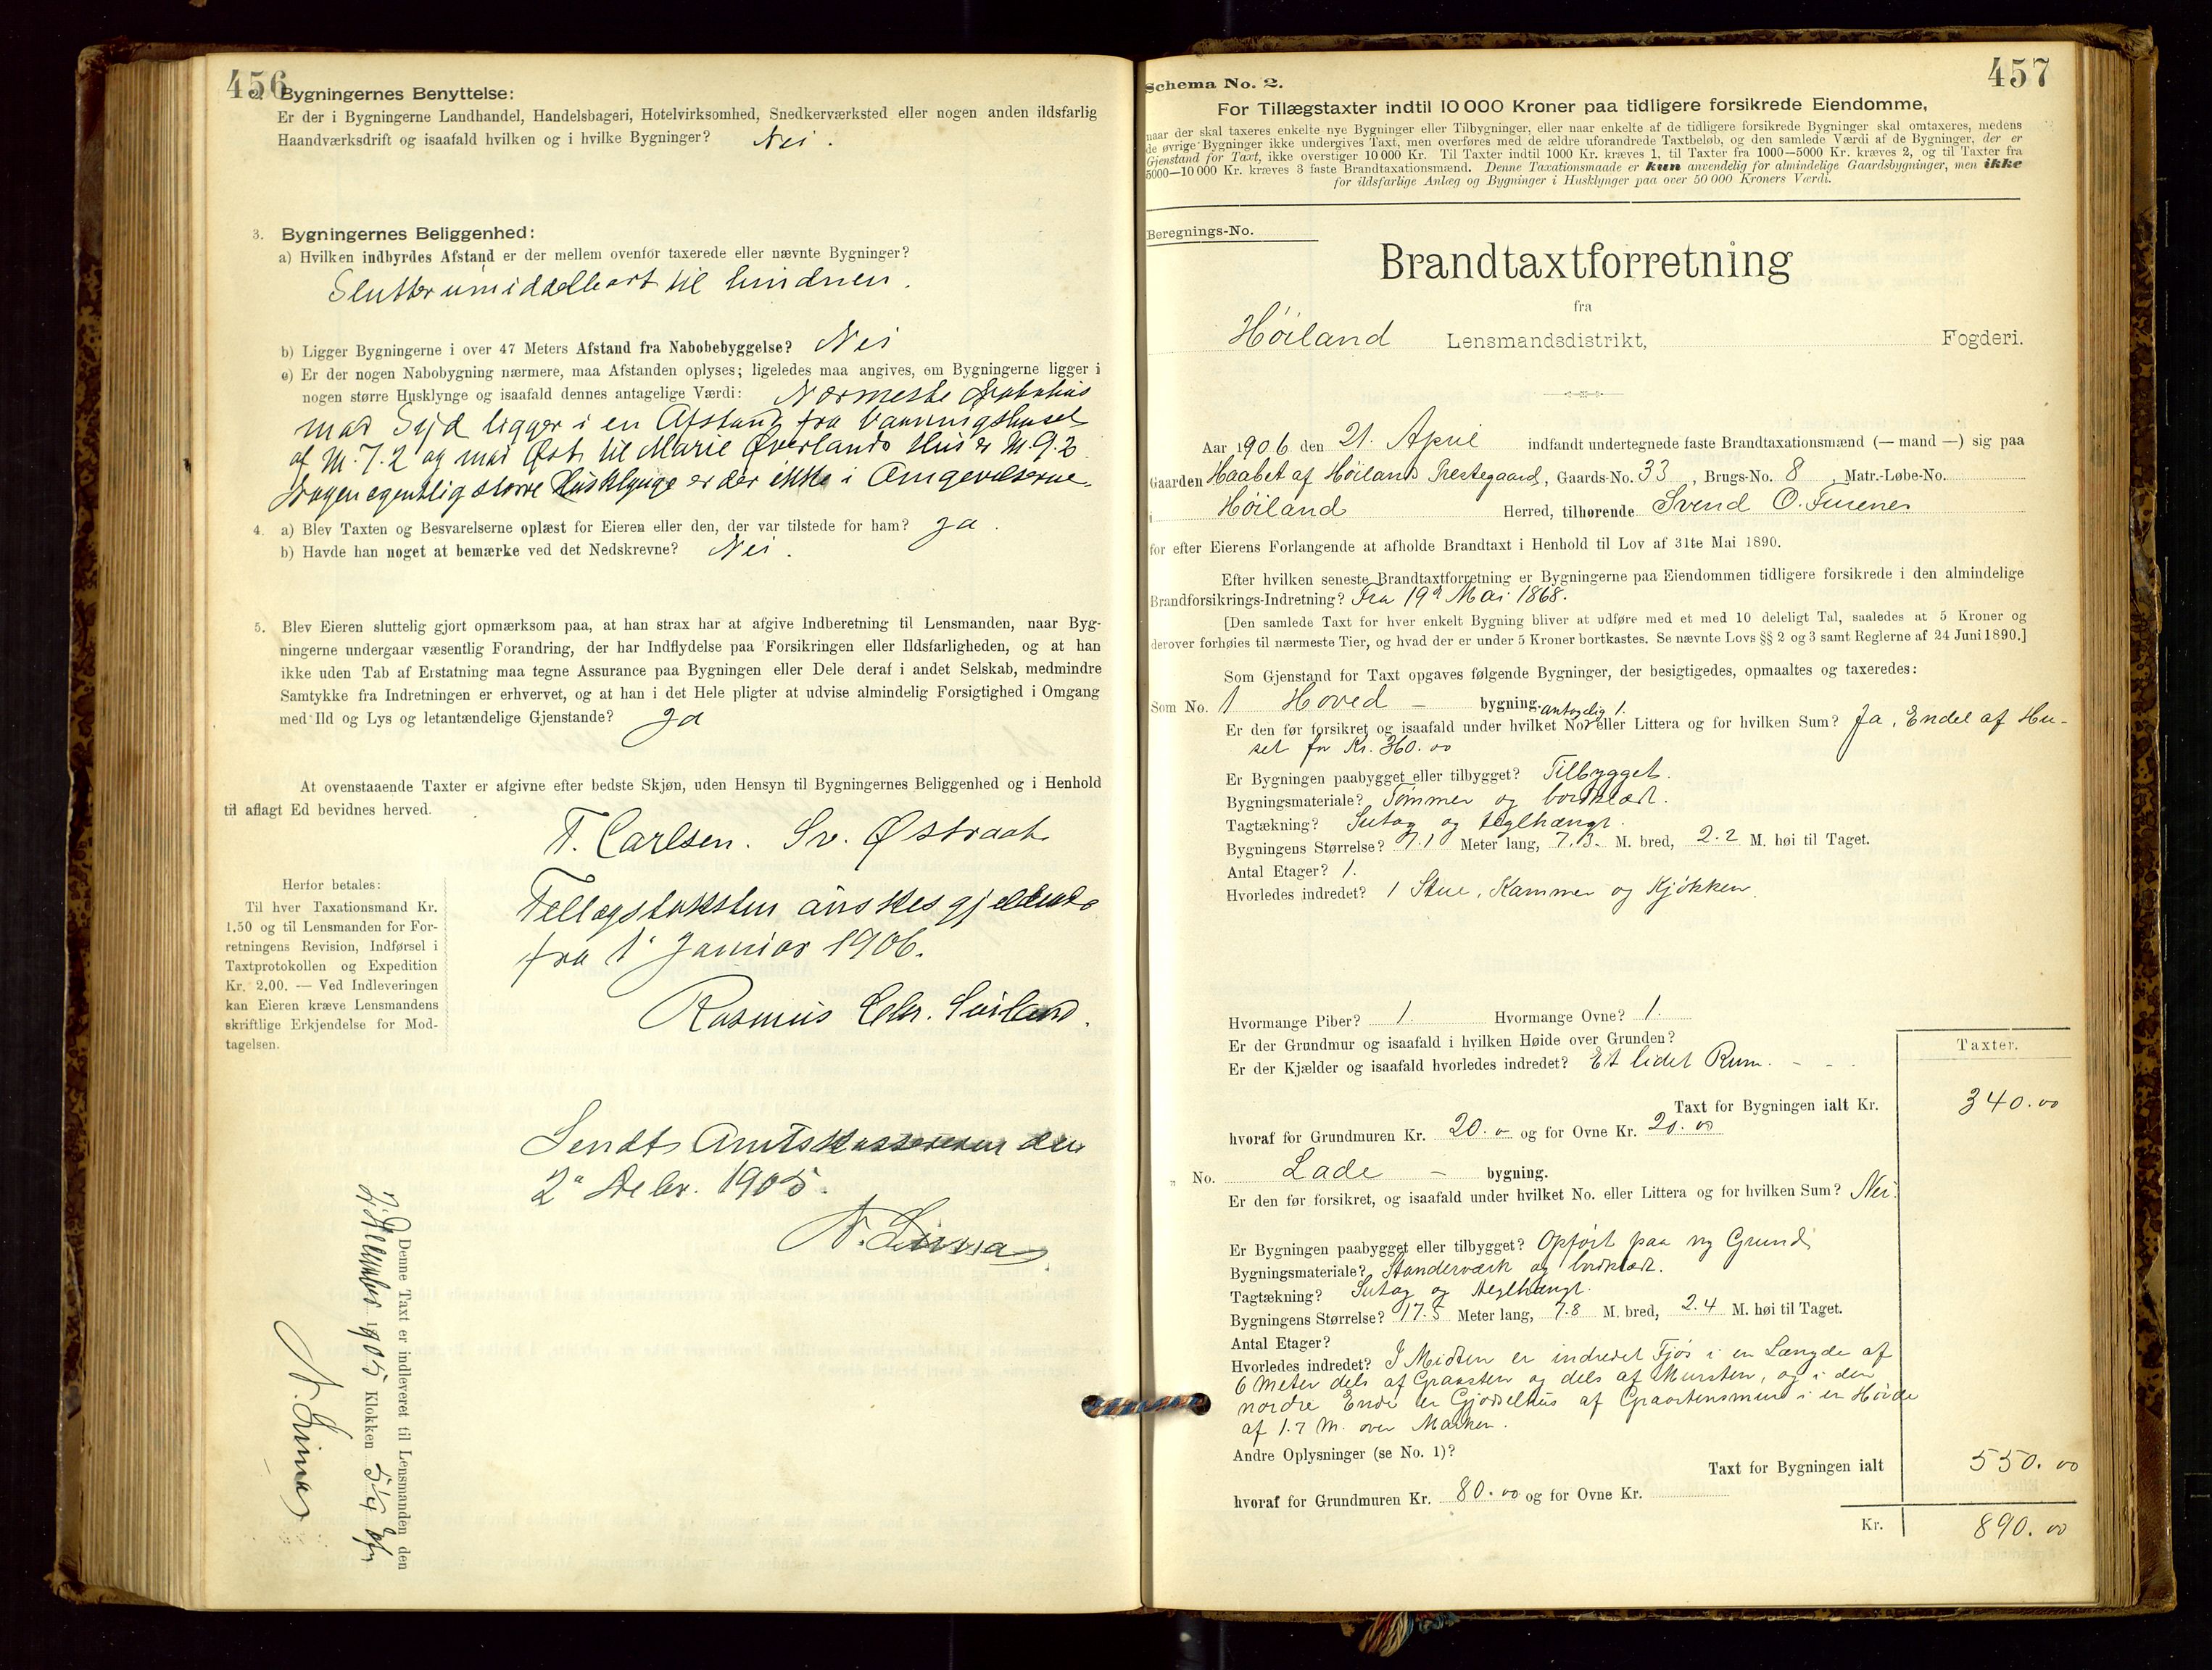 456
2. Bygningernes Benyttelse:
Er der i Bygningerne Landhandel, Handelsbageri, Hotelvirksomhed, Snedkerværksted eller nogen anden ildsfarlig
Haandværksdrift og isaafald hvilken og i hvilke Bygninger? Nei.
3. Bygningernes Beliggenhed:
a) Hvilken indbyrdes Afstand er der mellem ovenfor taxerede eller nævnte Bygninger?
Slutter umiddelbart til hindnen.
b) Ligger Bygningerne i over 47 Meters Afstand fra Nabobebyggelse? Nei
c) Er der nogen Nabobygning nærmere, maa Afstanden oplyses; ligeledes maa angives, om Bygningerne ligger i
nogen større Husklynge og isaafald dennes antagelige Værdi: Nærmeste Nabohus
mod Syd ligger i en Afstand fra Vaaningshuset
af M. 7.2 og mod Øst til Marie Øverlands Hus er M. 9.2
Nogen egentlig større Husklynge er der ikke i Omgivelserne.
4. a) Blev Taxten og Besvarelserne oplæst for Eieren eller den, der var tilstede for ham? Ja.
b) Havde han noget at bemærke ved det Nedskrevne? Nei.
5. Blev Eieren sluttelig gjort opmærksom paa, at han strax har at afgive Indberetning til Lensmanden, naar Byg-
ningerne undergaar væsentlig Forandring, der har Indflydelse paa Forsikringen eller Ildsfarligheden, og at han
ikke uden Tab af Erstatning maa tegne Assurance paa Bygningen eller Dele deraf i andet Selskab, medmindre
Samtykke fra Indretningen er erhvervet, og at han i det Hele pligter at udvise almindelig Forsigtighed i Omgang
med Ild og Lys og letantændelige Gjenstande? Ja
At ovenstaaende Taxter er afgivne efter bedste Skjøn, uden Hensyn til Bygningernes Beliggenhed og i Henhold
til aflagt Ed bevidnes herved.
T. Carlsen. Sv. Østraat
Herfor betales:
Til hver Taxationsmand Kr.
1.50 og til Lensmanden for For-
retningens Revision, Indførsel i
Taxtprotokollen og Expedition
Kr. 2.00. — Ved Indleveringen
kan Eieren kræve Lensmandens
skriftlige Erkjendelse for Mod-
tagelsen.
Tillægstaksten ønskes gjeldende
fra 1' Januar 1906.
Rasmus Chr.
Sendt Amtskassereren den
2' Debr. 1905.
N. Lima
Denne Taxt er indleveret til Lensmanden den
2. December 1905 Klokken 5 1/4 Efm
N. Lima
457
Schema No. 2.
For Tillægstaxter indtil 10 000 Kroner paa tidligere forsikrede Eiendomme,
naar der skal taxeres enkelte nye Bygninger eller Tilbygninger, eller naar enkelte af de tidligere forsikrede Bygninger skal omtaxeres, medens
de øvrige Bygninger ikke undergives Taxt, men overføres med de ældre uforandrede Taxtbeløb, og den samlede Værdi af de Bygninger, der er
Gjenstand for Taxt, ikke overstiger 10 000 Kr. Til Taxter indtil 1000 Kr. kræves 1, til Taxter fra 1000—5000 Kr. kræves 2, og til Taxter fra
5000—10 000 Kr. kræves 3 faste Brandtaxationsmænd. Denne Taxationsmaade er kun anvendelig for almindelige Gaardsbygninger, men ikke
for ildsfarlige Anlæg og Bygninger i Husklynger paa over 50 000 Kroners Værdi.
Beregnings-No.
Brandtaxtforretning
fra
Høiland Lensmandsdistrikt, Fogderi.
Aar 1906 den 21. April indfandt undertegnede faste Brandtaxationsmænd (— mand —) sig paa
Gaarden Haabet af Høilands Prestegaard, Gaards-No. 33, Brugs-No. 8, Matr.-Løbe-No.
i Høiland Herred, tilhørende Svend O. Furenes
for efter Eierens Forlangende at afholde Brandtaxt i Henhold til Lov af 31te Mai 1890.
Efter hvilken seneste Brandtaxtforretning er Bygningerne paa Eiendommen tidligere forsikrede i den almindelige
Brandforsikrings-Indretning? Fra 19' Mai 1868.
[Den samlede Taxt for hver enkelt Bygning bliver at udføre med et med 10 deleligt Tal, saaledes at 5 Kroner og
derover forhøies til nærmeste Tier, og hvad der er under 5 Kroner bortkastes. Se nævnte Lovs §§ 2 og 3 samt Reglerne af 24 Juni 1890.]
Som Gjenstand for Taxt opgaves følgende Bygninger, der besigtigedes, opmaaltes og taxeredes:
Som No. 1 Hoved — bygning. antagelig 1.
Er den før forsikret og isaafald under hvilket No. eller Littera og for hvilken Sum? Ja, Endel af Hu-
set for Kr. 360.00
Er Bygningen paabygget eller tilbygget? Tilbygget.
Bygningsmateriale? Tømmer og bordklædt.
Tagtækning? Sutag og teglhængt.
Bygningens Størrelse? 7.1 Meter lang, 7.3. M. bred, 2.2 M. høi til Taget.
Antal Etager? 1.
Hvorledes indredet? 1 Stue, Kammer og Kjøkken.
Hvormange Piber? 1. Hvormange Ovne? 1.
Er der Grundmur og isaafald i hvilken Høide over Grunden?
Er der Kjælder og isaafald hvorledes indredet? Et lidet Rum. - - -
Taxter.
Taxt for Bygningen ialt Kr. 340.00
hvoraf for Grundmuren Kr. 20.00 og for Ovne Kr. 20.00
" No. Lade — bygning.
Er den før forsikret, og isaafald under hvilket No. eller Littera og for hvilken Sum? Nei.
Er Bygningen paabygget eller tilbygget? Opført paa ny Grund
Bygningsmateriale? Standerværk og bordklædt.
Tagtækning? Sutag og teglhængt.
Bygningens Størrelse? 17.5 Meter lang, 7.8 M. bred, 2.4 M. høi til Taget.
Antal Etager?
Hvorledes indredet? I Midten er indredet Fjøs i en Længde af
6 Meter dels af Graasten og dels af Mursten, og i den
nordre Ende er Gjødselhus af Graastensmur i en Høide
af 1.7 M. over Marken.
Andre Oplysninger (se No. 1)?
Taxt for Bygningen ialt 550.00
hvoraf for Grundmuren Kr. 80.00 og for Ovne Kr.
Kr. 890.00